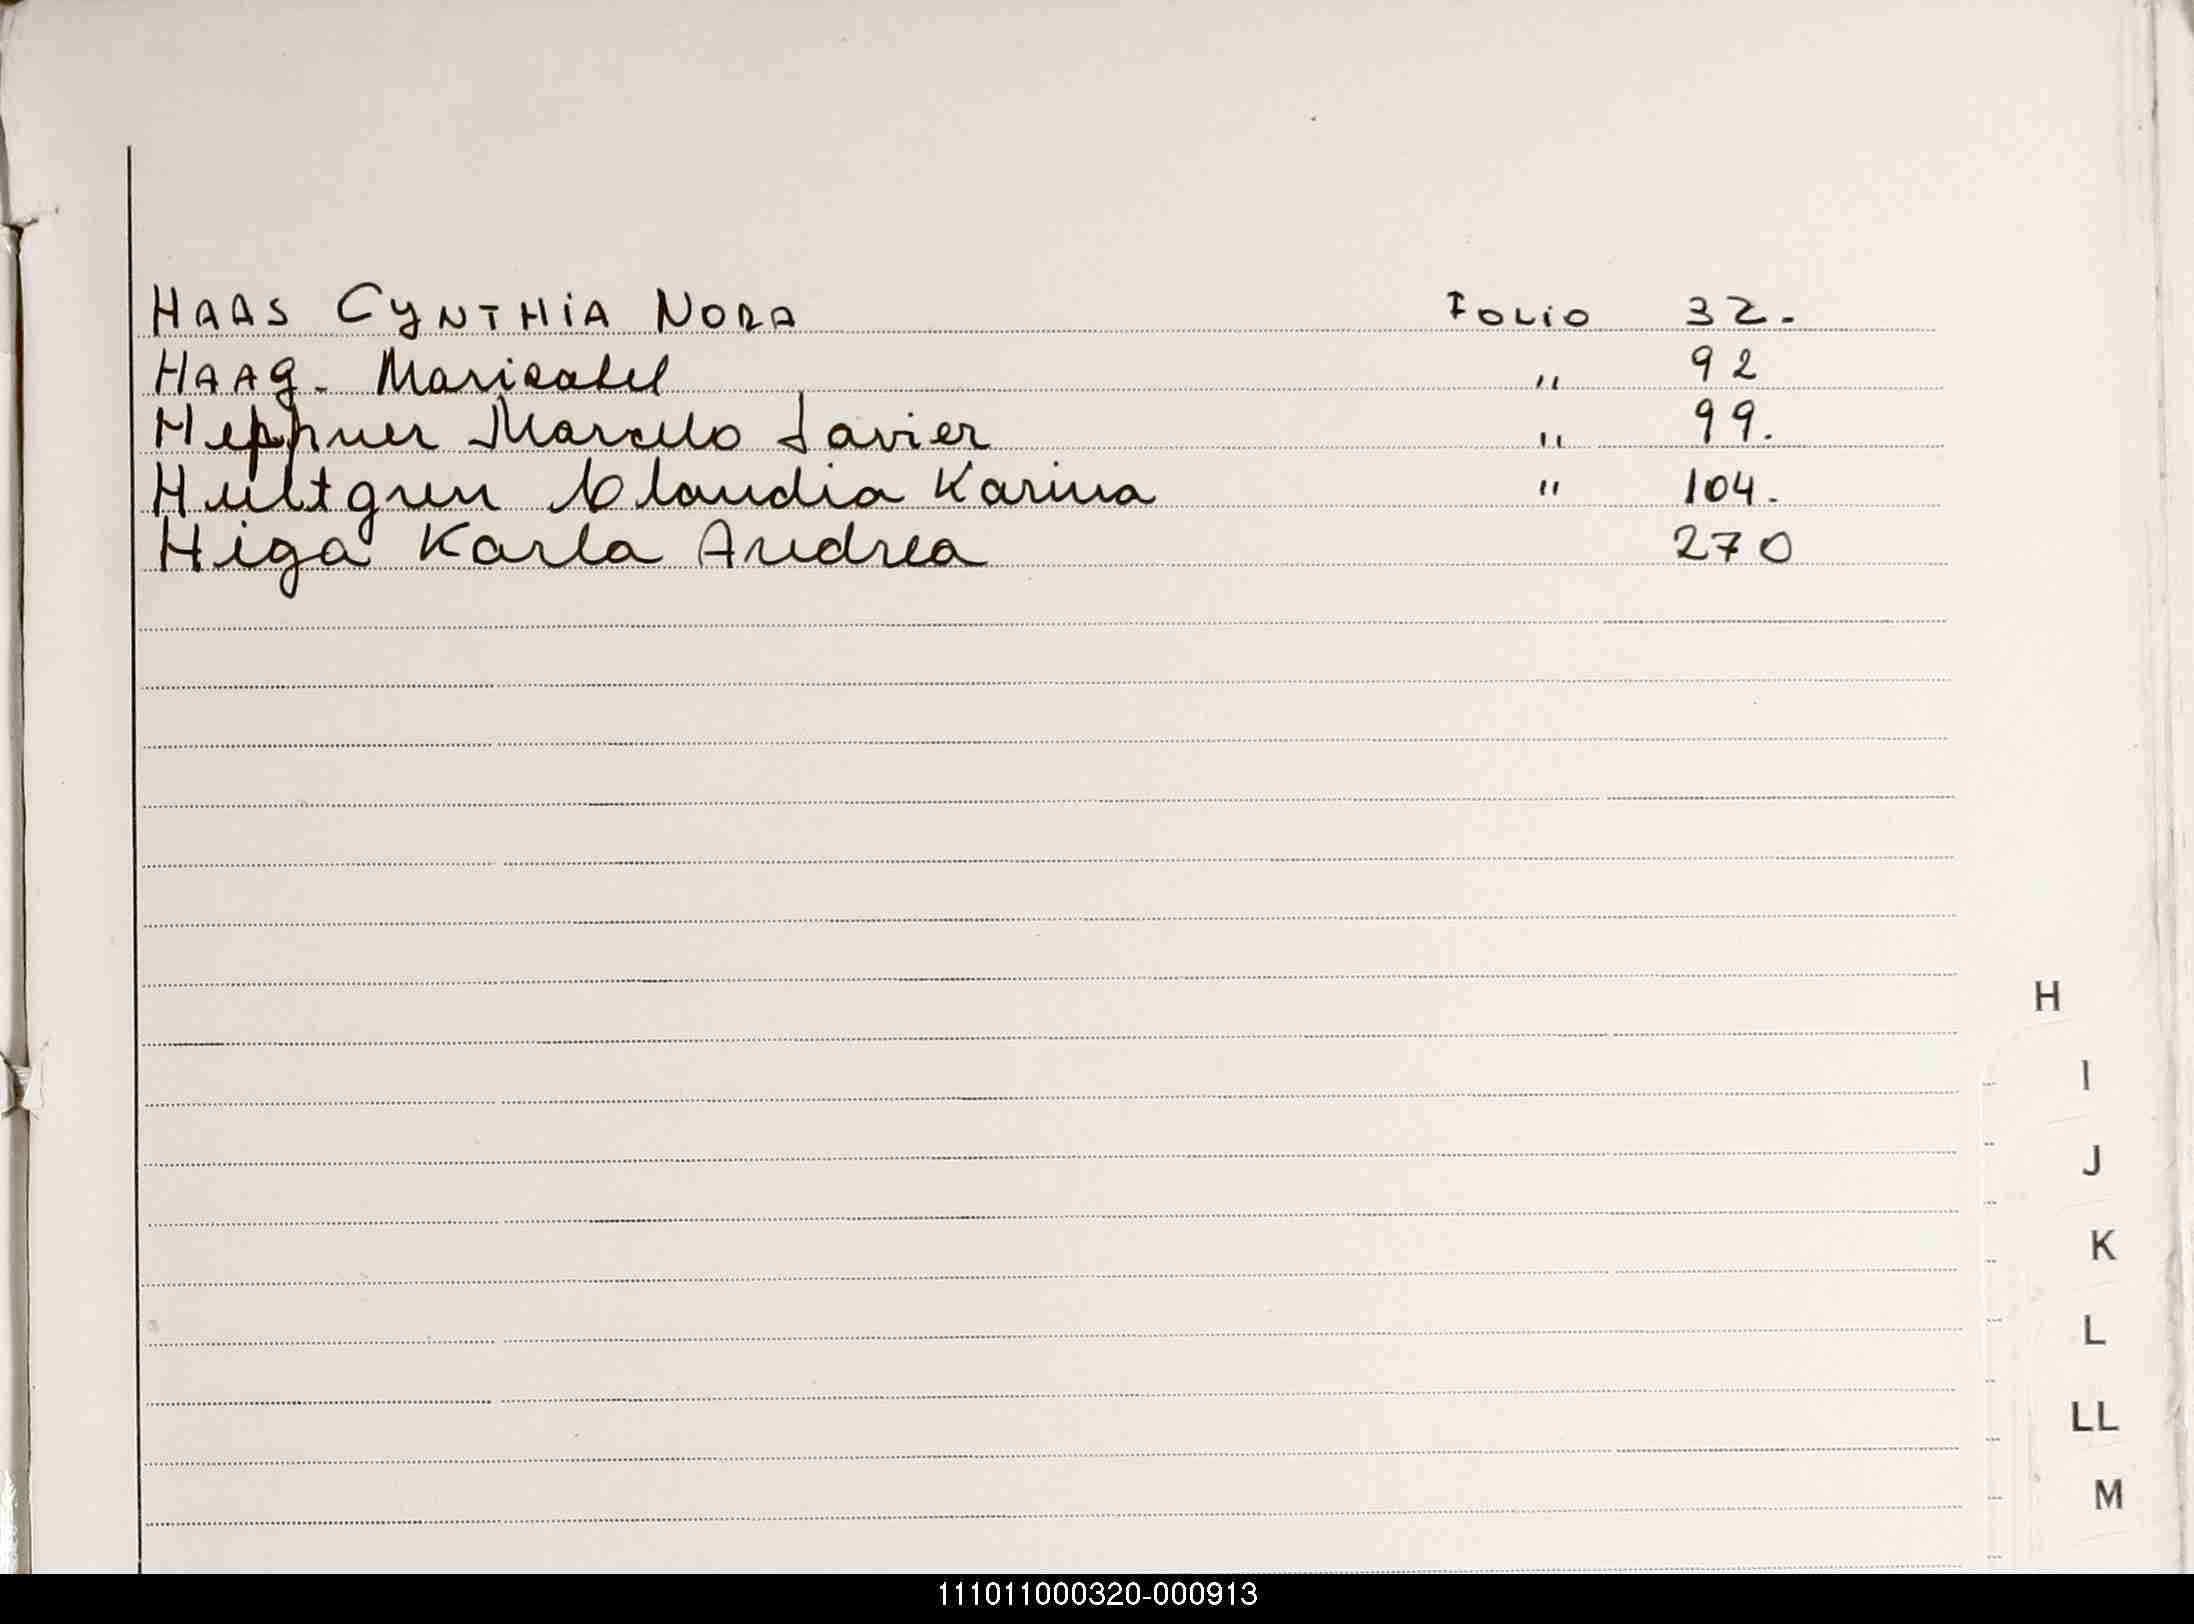 HAAS CYNTHIA NORA Folio 32.
HAAG. Marisabel " 92
Heppner Marcelo Javier " 99.
Hultgren Claudia Karina " 104.
Higa Karla Andrea 270
H
I
J
K
L
LL
M
111011000320-000913